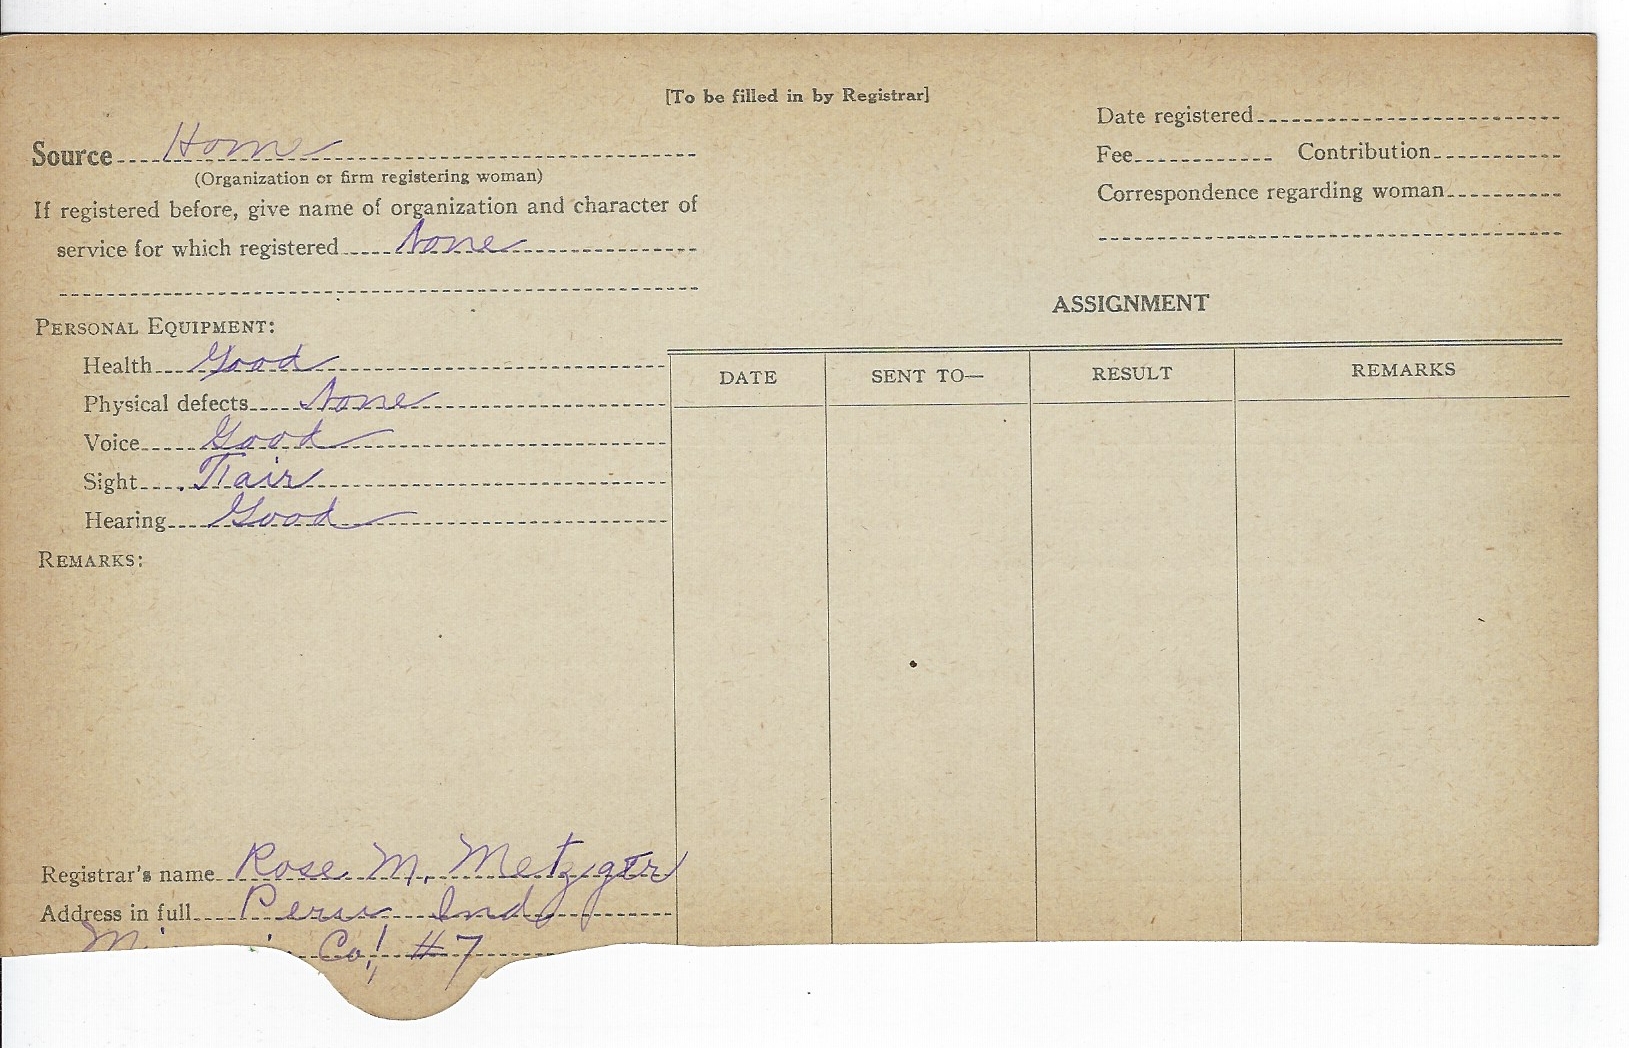 [To be filled in by Registrar]
Source Home
(Organization or firm registering woman)
If registered before, give name of organization and character of
service for which registered None
Date registered
Fee Contribution
Correspondence regarding woman
PERSONAL EQUIPMENT:
Health Good
Physical defects None
Voice Good
Sight Fair
Hearing Good
REMARKS:
ASSIGNMENT
DATE SENT TO— RESULT REMARKS
Registrar's name Rose M. Metzger
Address in full Peru Ind
Co. #7